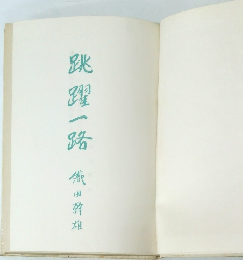 跳躍一路
織田幹雄